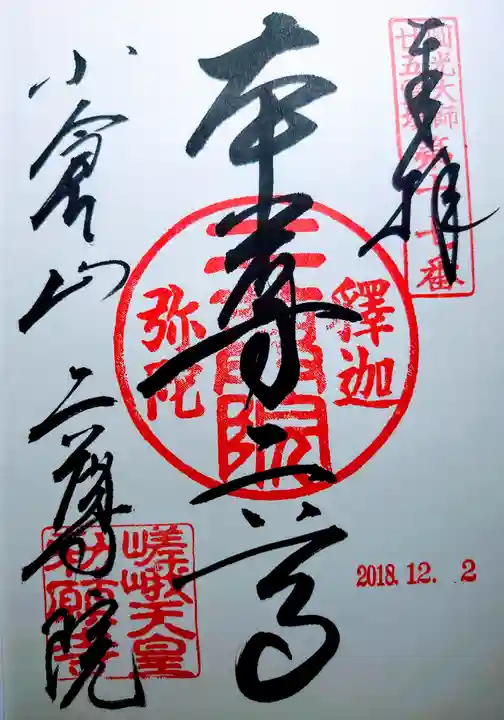 奉拝
圓光大師
廿五霊場第十七番
本尊二尊
釋迦
二尊院
弥陀
2018.12. 2
小倉山 二尊院
嵯峨天皇
勅願寺